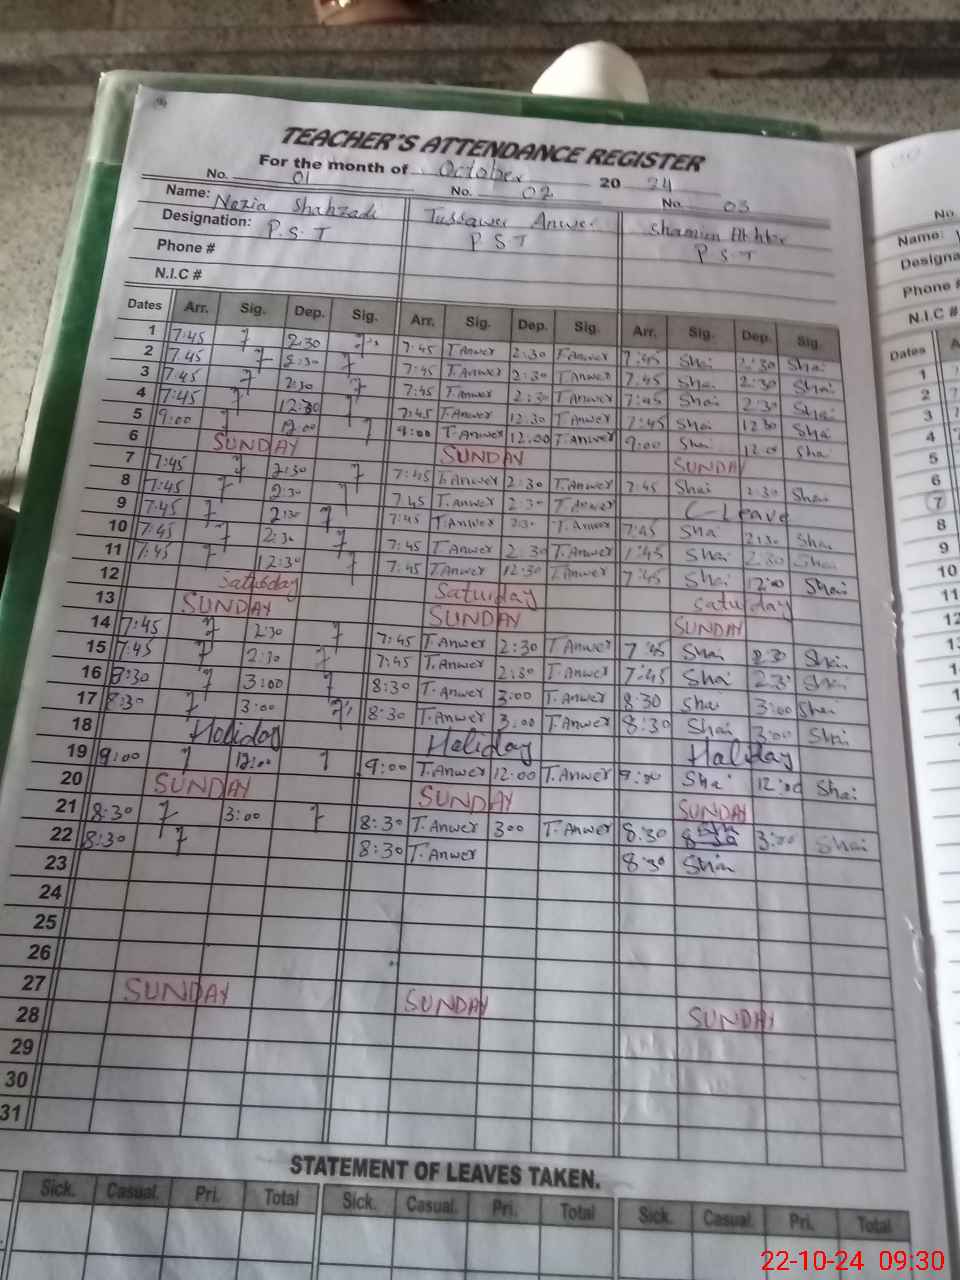 TEACHER'S ATTENDANCE REGISTER
For the month of October 20 24
No. 01 No. 02 No. 03
Name: Nazia Shahzadi Tussawer Anwer Shamim Akhter
Designation: P.S.T P S T P S.T
Phone #
N.I.C #
Dates Arr. Sig. Dep. Sig. Arr. Sig. Dep. Sig. Arr. Sig. Dep. Sig.
1 7:45 2:30 7:45 T.Anwer 2:30 T.Anwer 7:45 Sha 2:30 Sha
2 7.45 2:30 7:45 T.Anwer 2:30 T.Anwer 7:45 Sha 2:30 Sha
3 7:45 2:30 7:45 T.Anwer 2:30 T.Anwer 7:45 Sha 2:30 Sha
4 7:45 12:30 7:45 T.Anwer 12.30 T.Anwer 7:45 Sha 12 30 Sha
5 9:00 12:00 9:00 T.Anwer 12.00 T.Anwer 9:00 Sha 12:0 Sha
6 SUNDAY SUNDAY SUNDAY
7 7:45 2:30 7:45 T.Anwer 2:30 T.Anwer 7:45 Shai 2:30 Sha
8 7:45 2:30 7.45 T.Anwer 2:30 T.Anwer C Leave
9 7:45 2:30 7:45 T.Anwer 2:30 T.Anwer 7:45 Sha 2:30 Sha
10 7:45 2:30 7:45 T.Anwer 2 30 T.Anwer 7:45 Sha 2:30 Sha
11 7:45 12:30 7:45 T.Anwer 12:30 T.Anwer 7:45 Sha 12:00 Shai
12 Saturday Saturday Saturday
13 SUNDAY SUNDAY SUNDAY
14 7:45 2:30 7:45 T.Anwer 2:30 T.Anwer 7:45 Sha 2:30 Sha
15 7:45 2:30 7:45 T.Anwer 2:30 T.Anwer 7:45 Sha 2:30 Sha
16 8:30 3:00 8:30 T.Anwer 3:00 T.Anwer 8:30 Sha 3:00 Shai
17 8:30 3:00 8:30 T.Anwer 3:00 T.Anwer 8:30 Sha 3:00 Shai
18 Holiday Holiday Haliday
19 9:00 12:00 9:00 T.Anwer 12:00 T.Anwer 9:00 Sha 12:00 Sha
20 SUNDAY SUNDAY SUNDAY
21 8:30 3:00 8:30 T.Anwer 3:00 T.Anwer 8:30 3:00 Shai
22 8:30 8:30 T.Anwer 8:30 Sha
23
24
25
26
27 SUNDAY SUNDAY SUNDAY
28
29
30
31
STATEMENT OF LEAVES TAKEN.
Sick. Casual. Pri. Total Sick. Casual. Pri. Total Sick. Casual. Pri. Total
No.
Name:
Designa
Phone #
N.I.C #
Dates
1
2
3
4
5
6
7
8
9
10
11
12
22-10-24 09:30